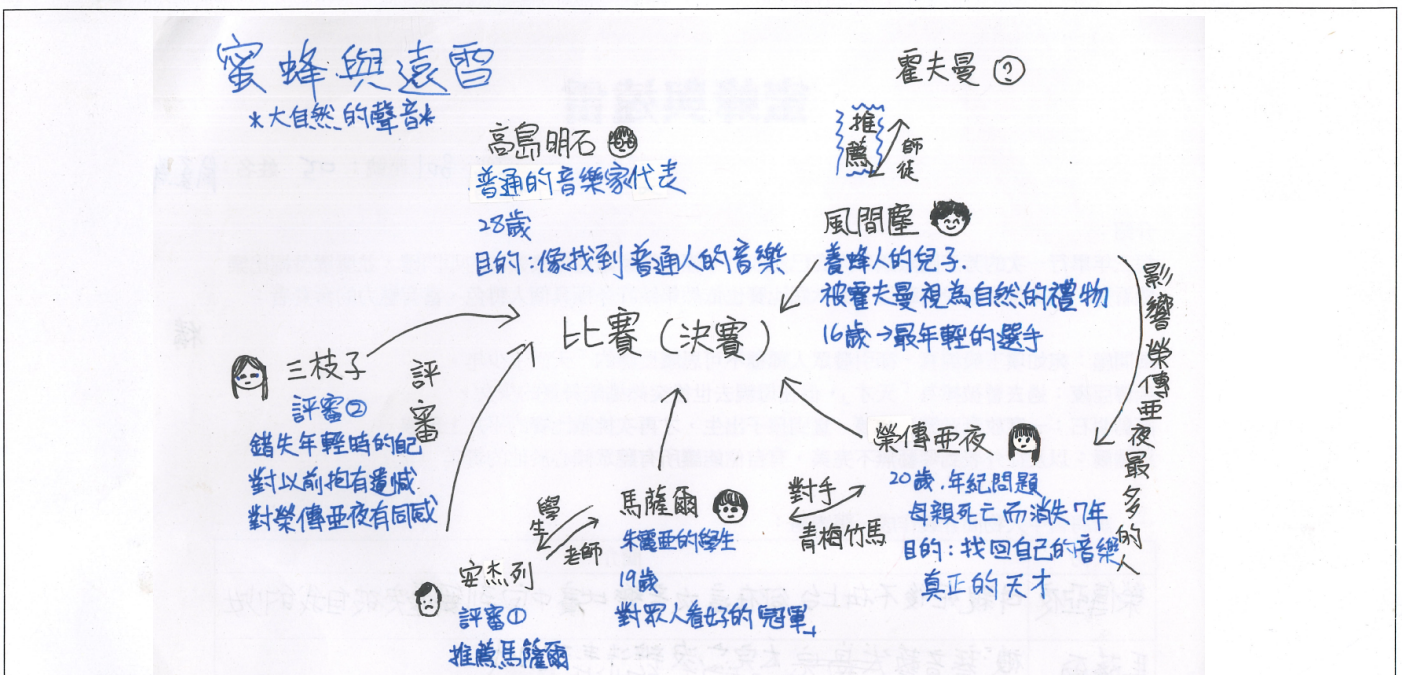 蜜蜂與遠雷
*大自然的聲音*
霍夫曼 ?
推薦
師徒
高島明石
普通的音樂家代表
28歲
目的:像找到普通人的音樂
風間塵
養蜂人的兒子.
被霍夫曼視為自然的禮物
16歲→最年輕的選手
影響榮傳亜夜最多的人
比賽(決賽)
三枝子
評審②
錯失年輕時的
對以前抱有遺憾
對榮傳亜夜有同感
評審
榮傳亜夜
20歲.年紀問題
母親死亡而消失7年
目的:找回自己的音樂
真正的天才
對手
青梅竹馬
馬薩爾
的學生
19歲
對眾人看好的「冠軍」
學生
老師
安杰列
評審①
推薦馬薩爾